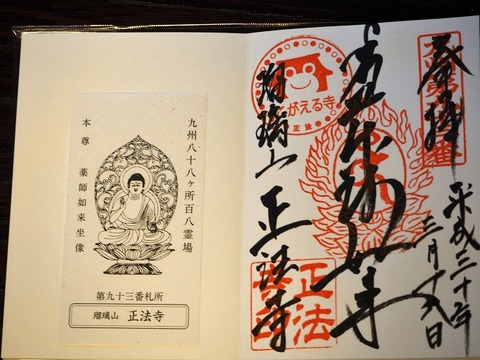 九州八十八ヶ所百八霊場
本尊 薬師如来坐像
第九十三番札所
瑠璃山 正法寺
奉拝
平成三十年
三月十八日
瑠璃山 正法寺
がえる寺
正法寺